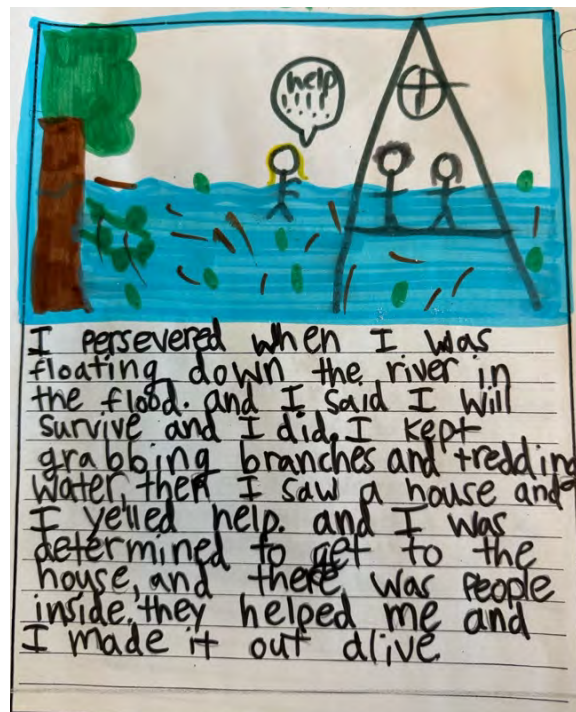 help
!!!!
I persevered when I was
floating down the river in
the flood. and I said I will
survive and I did. I kept
grabbing branches and tredding
water, then I saw a house and
I yelled help. and I was
determined to get to the
house, and there was people
inside. they helped me and
I made it out alive.